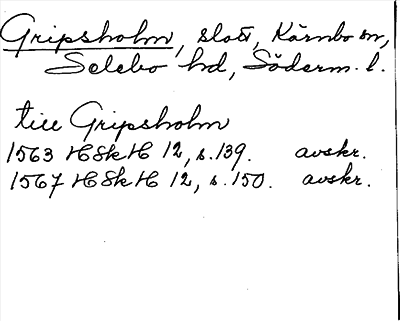 Gripsholm, slott, Kärnbo sn,
Selebo hd, Söderm. l.
till Gripsholm
1563 HSkH 12, s. 139. avskr.
1567 HSkH 12, s. 150. avskr.